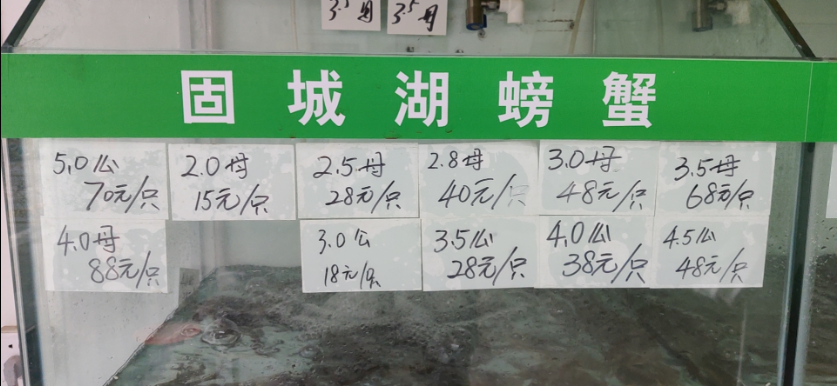 3.5母
3.5母
固城湖螃蟹
5.0公
70元/只
2.0母
15元/只
2.5母
28元/只
2.8母
40元/只
3.0母
48元/只
3.5母
68元/只
4.0母
88元/只
3.0公
18元/只
3.5公
28元/只
4.0公
38元/只
4.5公
48元/只